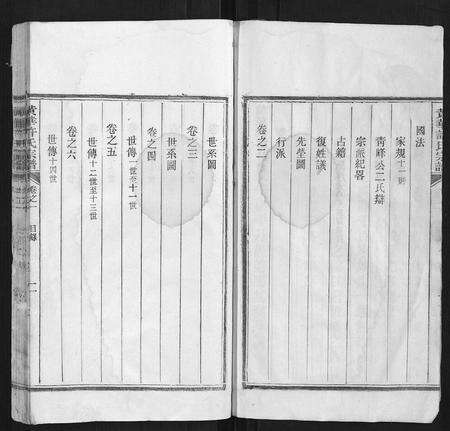 黃華許氏宗譜
國法
家規十一則
靑峰公二氏辯
宗派紀畧
占籍
復姓議
先塋圖
行派
卷之二
世系圖
卷之三
世系圖
卷之四
世傳一世至十一世
卷之五
世傳十二世至十三世
卷之六
世傳十四世
黃華許氏宗譜
卷之一
目錄
二